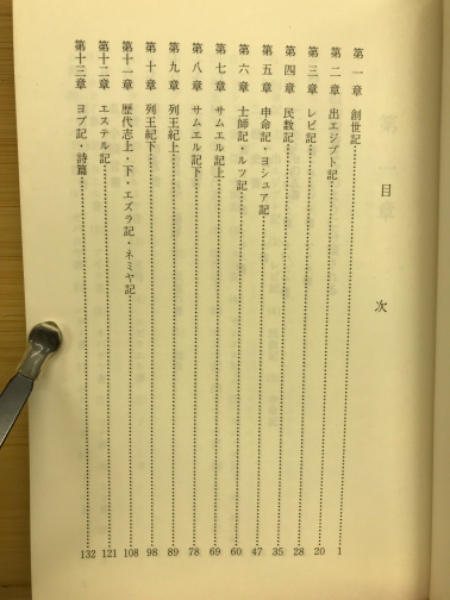 目次
第一章 創世記 1
第二章 出エジプト記 20
第三章 レビ記 28
第四章 民数記 35
第五章 申命記・ヨシュア記 47
第六章 士師記・ルツ記 60
第七章 サムエル記上 69
第八章 サムエル記下 78
第九章 列王紀上 89
第十章 列王紀下 98
第十一章 歴代志上・下・エズラ記・ネミヤ記 108
第十二章 エステル記 121
第十三章 ヨブ記・詩篇 132